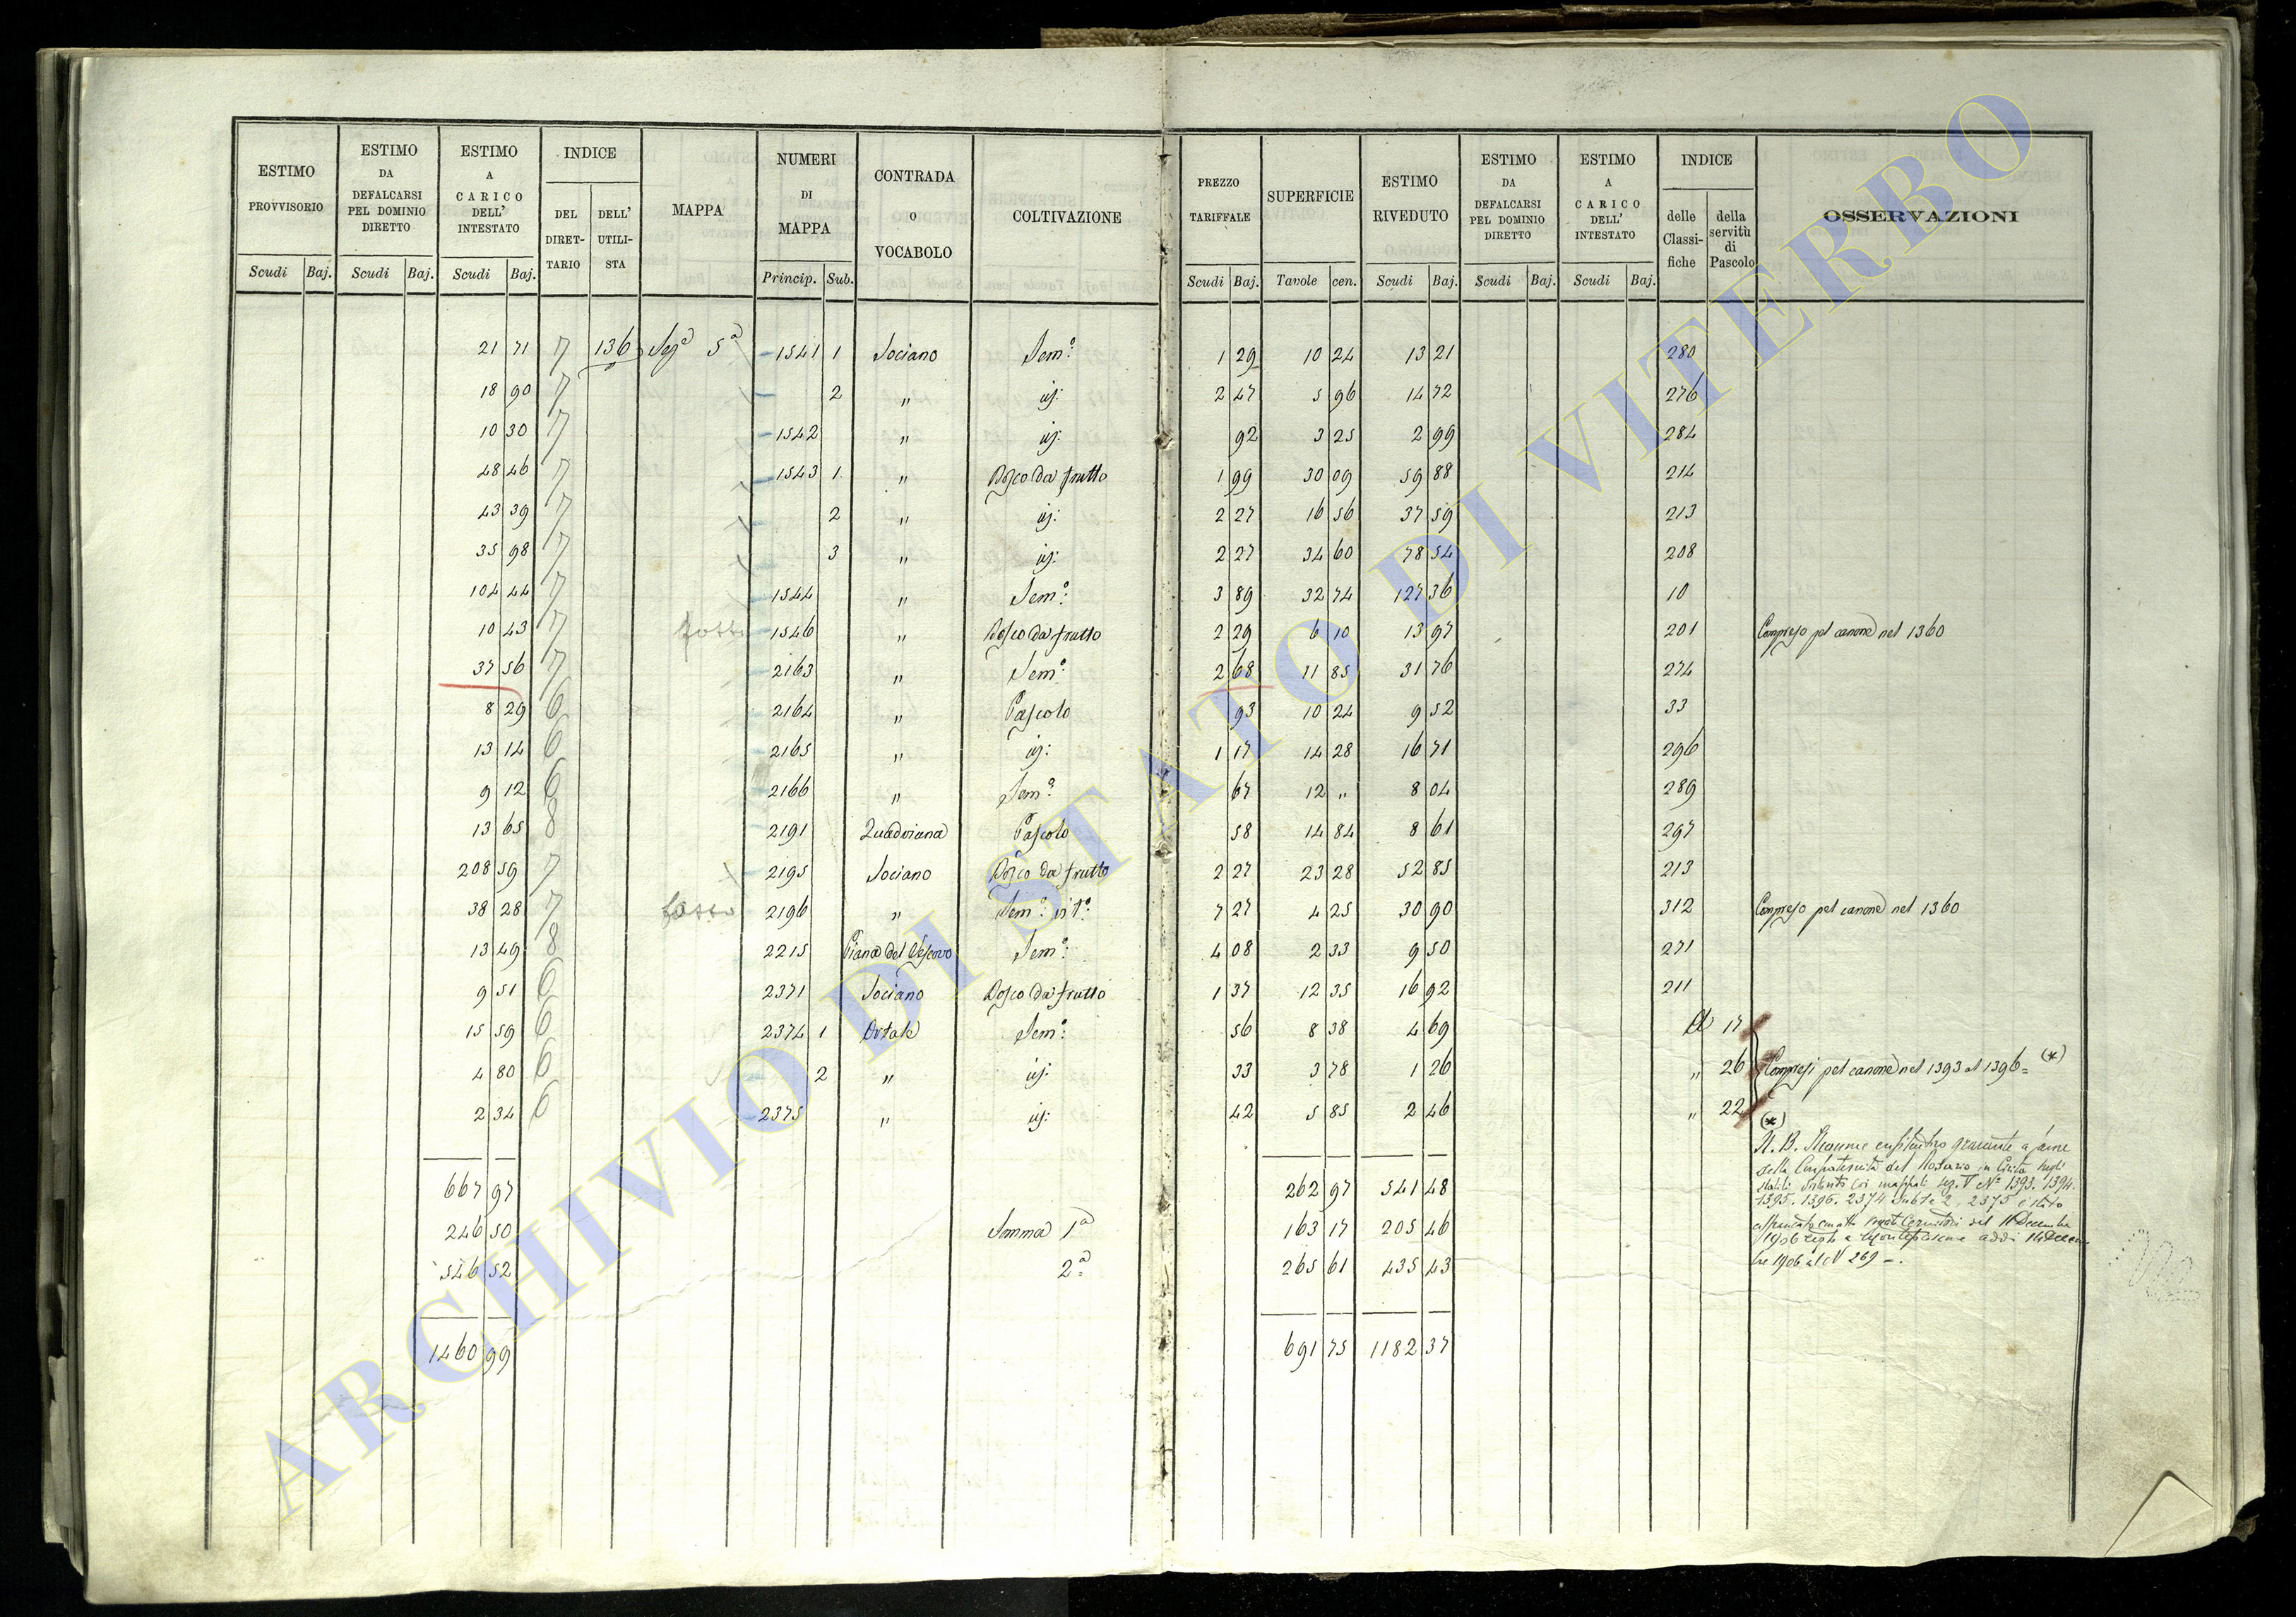 ESTIMO PROVVISORIO Scudi Baj.
ESTIMO DA DEFALCARSI PEL DOMINIO DIRETTO Scudi Baj.
ESTIMO A CARICO DELL' INTESTATO Scudi Baj.
INDICE DEL DIRET-TARIO DELL' UTILI-STA
MAPPA
NUMERI DI MAPPA Princip. Sub.
CONTRADA O VOCABOLO
COLTIVAZIONE
PREZZO TARIFFALE Scudi Baj.
SUPERFICIE Tavole cen.
ESTIMO RIVEDUTO Scudi Baj.
ESTIMO DA DEFALCARSI PEL DOMINIO DIRETTO Scudi Baj.
ESTIMO A CARICO DELL' INTESTATO Scudi Baj.
INDICE delle Classi-fiche della servitù di Pascolo
OSSERVAZIONI
21 71 7 136 Sez.a 5a 1541 1 Sociano Sem.o 1 29 10 24 13 21 280
18 90 7 2 " id: 2 47 5 96 14 72 276
10 30 7 1542 " id: 92 3 25 2 99 284
48 46 7 1543 1 " Bosco da frutto 1 99 30 09 59 88 214
43 39 7 2 " id: 2 27 16 56 37 59 213
35 98 7 3 " id: 2 27 34 60 78 54 208
104 44 7 1544 " Sem.o 3 89 32 74 127 36 10
10 43 7 fosso 1546 " Bosco da frutto 2 29 6 10 13 97 201 Compreso pel canone nel 1360
37 56 7 2163 " Sem.o 2 68 11 85 31 76 274
8 29 6 2164 " Pascolo 93 10 24 9 52 33
13 14 6 2165 " id: 1 17 14 28 16 71 296
9 12 6 2166 " Sem.o 67 12 " 8 04 289
13 65 8 2191 Quadviana Pascolo 58 14 84 8 61 297
208 59 7 2195 Sociano Bosco da frutto 2 27 23 28 52 85 213
38 28 7 fosso 2196 " Sem.o vit.o 7 27 4 25 30 90 312 Compreso pel canone nel 1360
13 49 8 2215 Piana del Vescovo Sem.o 4 08 2 33 9 50 271
9 51 6 2371 Sociano Bosco da frutto 1 37 12 35 16 92 211
15 59 6 2374 1 Ortale Sem.o 56 8 38 4 69 A 17
4 80 6 2 " id: 33 3 78 1 26 " 26 Compresi pel canone nel 1393 al 1396 = (*)
2 34 6 2375 " id: 42 5 85 2 46 " 22
667 97 262 97 541 48
246 50 Somma 1a 163 17 205 46
546 52 2a 265 61 435 43
1460 99 691 75 1182 37
(*)
N. B. Il canone enfiteutico gravante a favore
della Confraternita del Rosario in Civita sugli
stabili distinti coi mappali sez. V Ni 1393. 1394.
1395. 1396. 2374 sub 1 e 2, 2375 è stato
affrancato con atto del 11 Decembre
1906 reg.to a Montefiascone addì 14 Decem-
bre 1906 al N 269 -.
ARCHIVIO DI STATO DI VITERBO